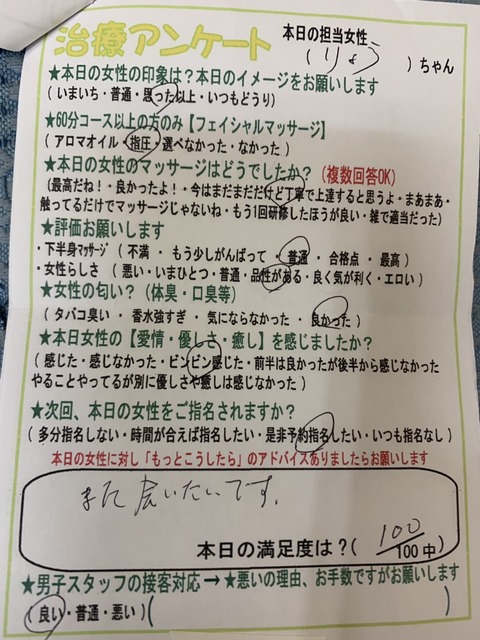 治療アンケート
本日の担当女性
( りょう )ちゃん
★本日の女性の印象は?本日のイメージをお願いします
(いまいち・普通・思った以上・いつもどうり)
★60分コース以上の方のみ【フェイシャルマッサージ】
( アロマオイル・指圧・選べなかった・なかった )
★本日の女性のマッサージはどうでしたか?(複数回答OK)
(最高だね!・良かったよ!・今はまだまだだけど丁寧で上達すると思うよ・まあまあ・
触ってるだけでマッサージじゃないね・もう1回研修したほうが良い・雑で適当だった)
★評価お願いします
・下半身マッサージ ( 不満 ・ もう少しがんばって ・ 普通 ・ 合格点 ・ 最高 )
・女性らしさ ( 悪い・いまひとつ・普通・品性がある・良く気が利く・エロい )
★女性の匂い?(体臭・口臭等)
( タバコ臭い ・ 香水強すぎ ・ 気にならなかった ・ 良かった )
★本日女性の【愛情・優しさ・癒し】を感じましたか?
( 感じた・感じなかった・ビンビン感じた・前半は良かったが後半から感じなかった
やることやってるが別に優しさや癒しは感じなかった )
★次回、本日の女性をご指名されますか?
( 多分指名しない・時間が合えば指名したい・是非予約指名したい・いつも指名なし )
本日の女性に対し「もっとこうしたら」のアドバイスありましたらお願いします
また会いたいです。
本日の満足度は?( 100/100中)
★男子スタッフの接客対応→★悪いの理由、お手数ですがお願いします
(良い・普通・悪い)( )